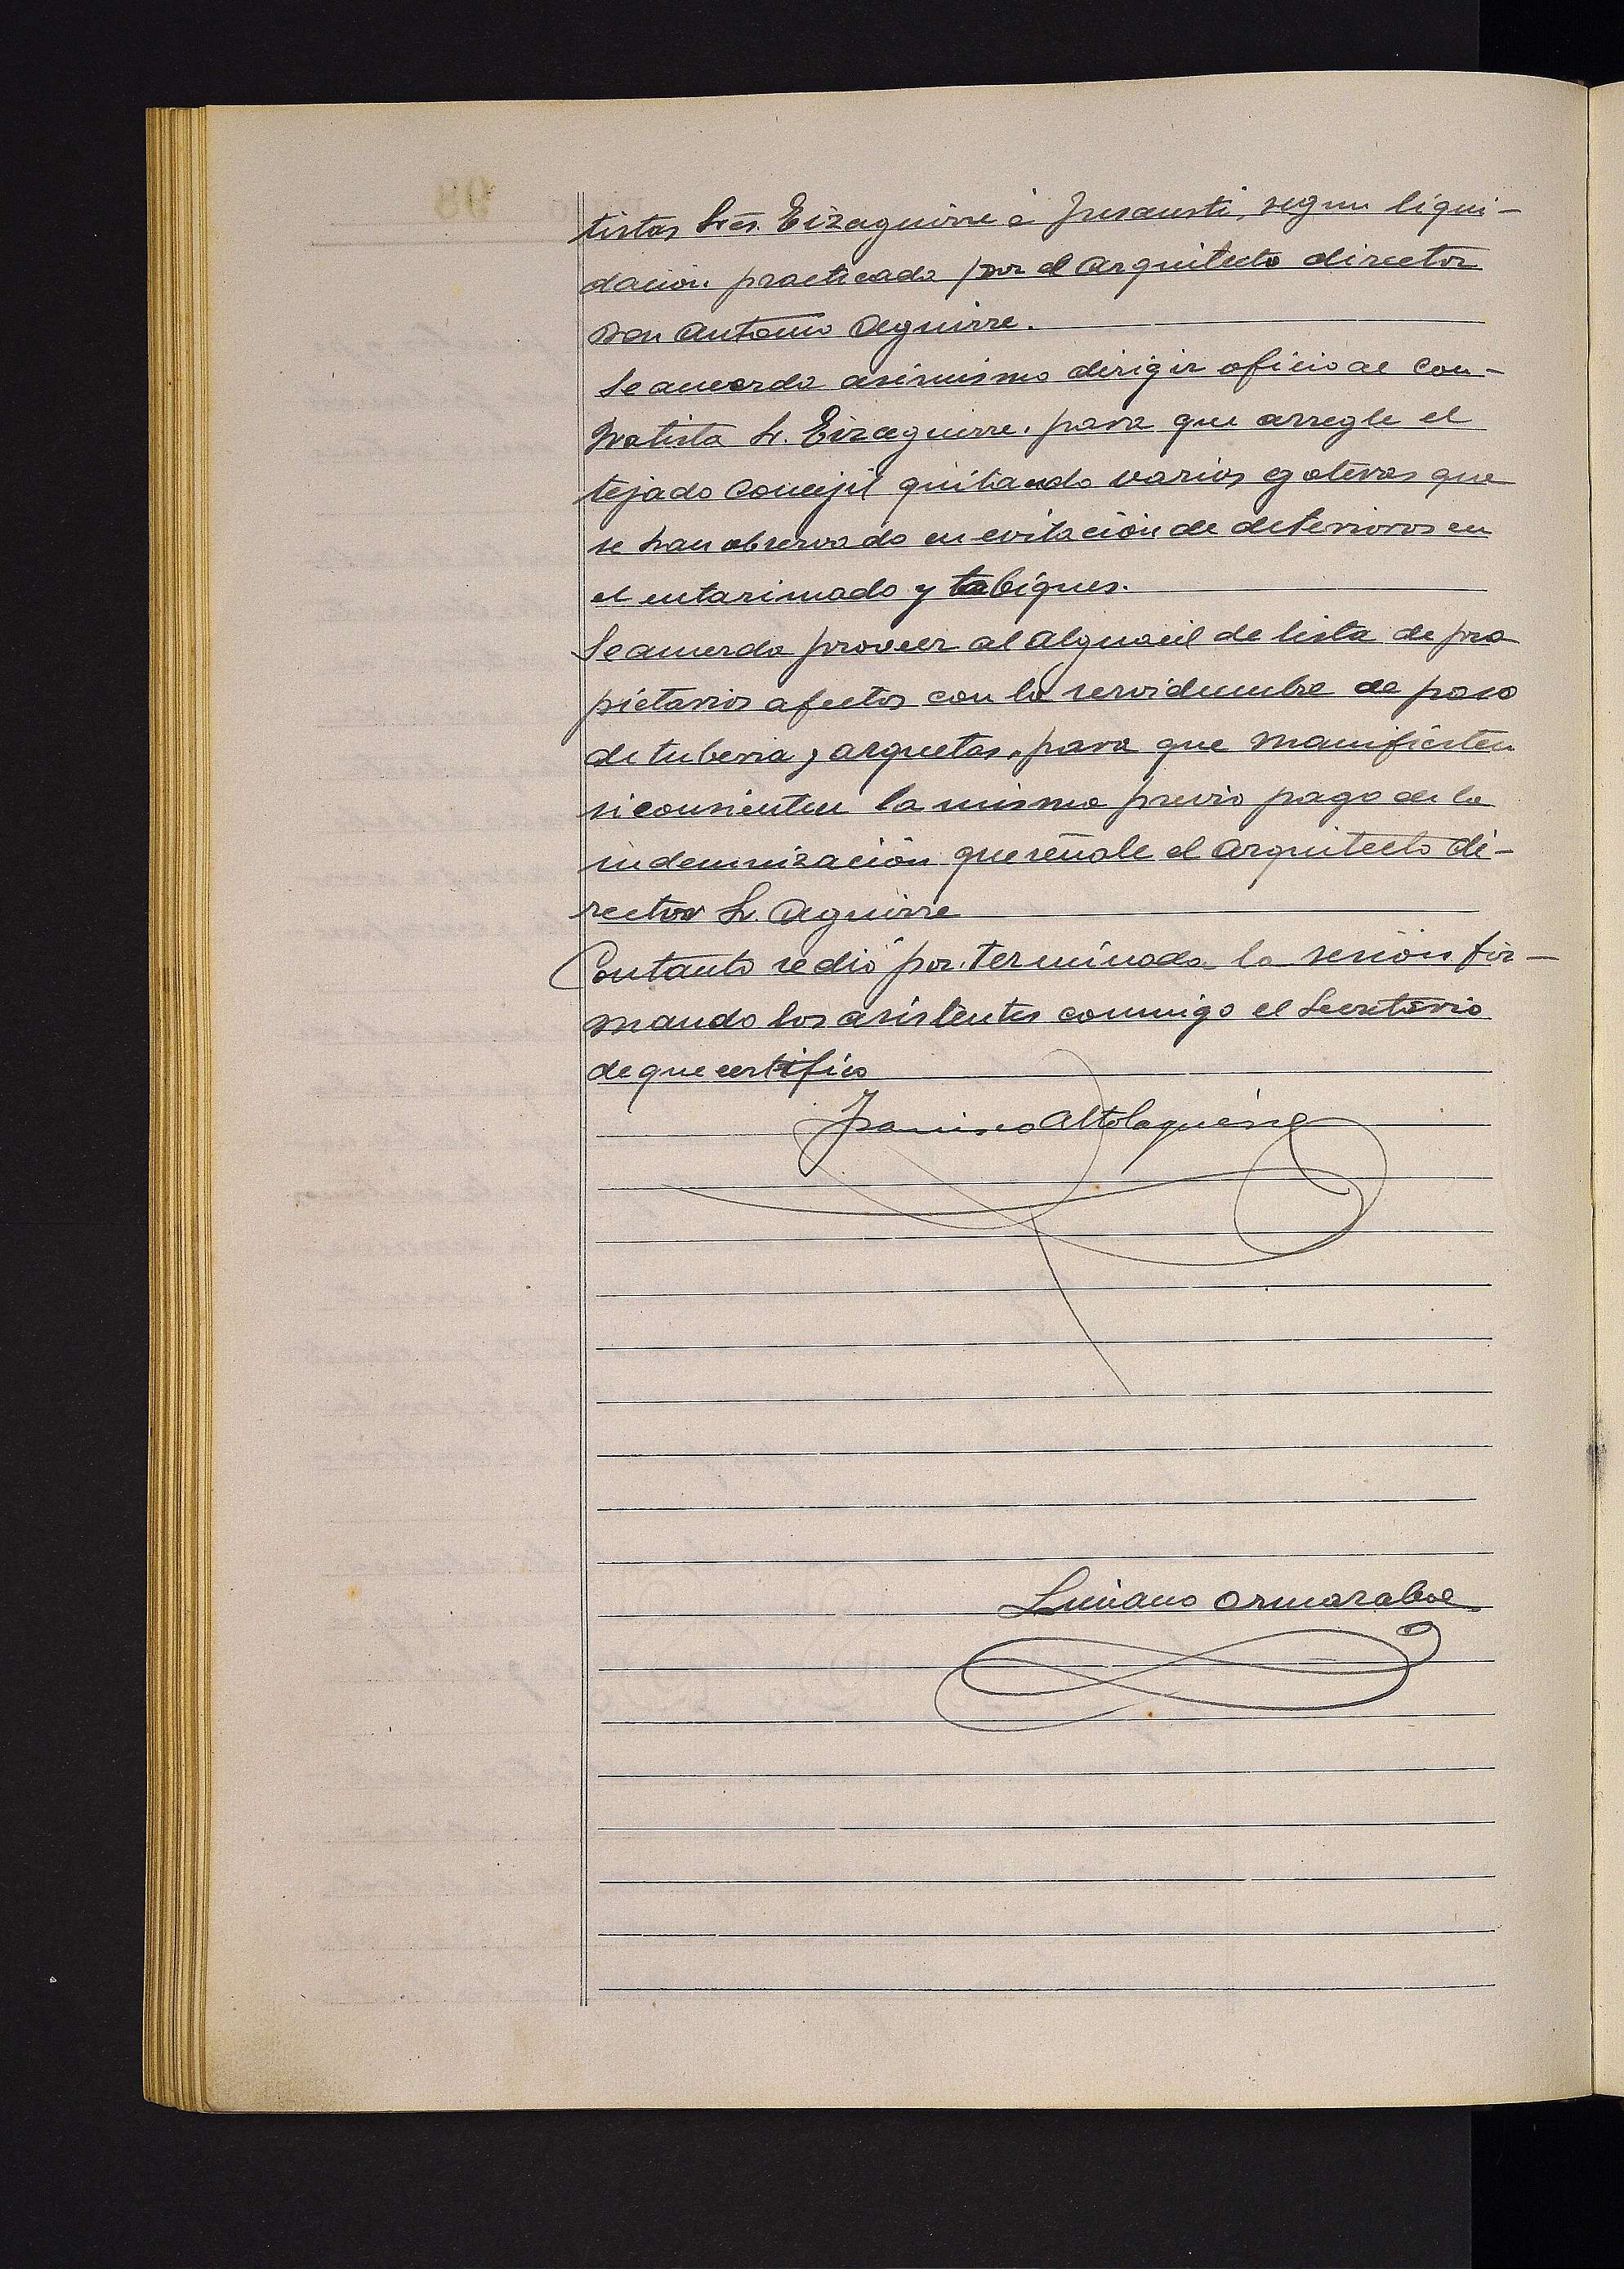 tistas Sres. Eizaguirre é Insausti, segun liqui-
dacion. practicada por el Arquitecto director
Don Antonio Aguirre.
Se acuerda asimismo dirigir oficio al con-
tratista Sr. Eizaguirre. para que arregle el
tejado Concejil quitando varios goteras que
se han observado en evitación de deterioros en
el entarimado y tabiques.
Se acuerda proveer al Alguacil de lista de pro
pietarios afectos con la servidumbre de paso
de tuberia y arquetas, para que manifiesten
si consienten la misma previo pago de la
indemnización que señale el Arquitecto di-
rector Sr. Aguirre
Contanto se dió por terminada la sesión fir-
mando los asistentes conmigo el Secretario
de que certifico
Francisco Altolaguirre
Luciano Ormazabal